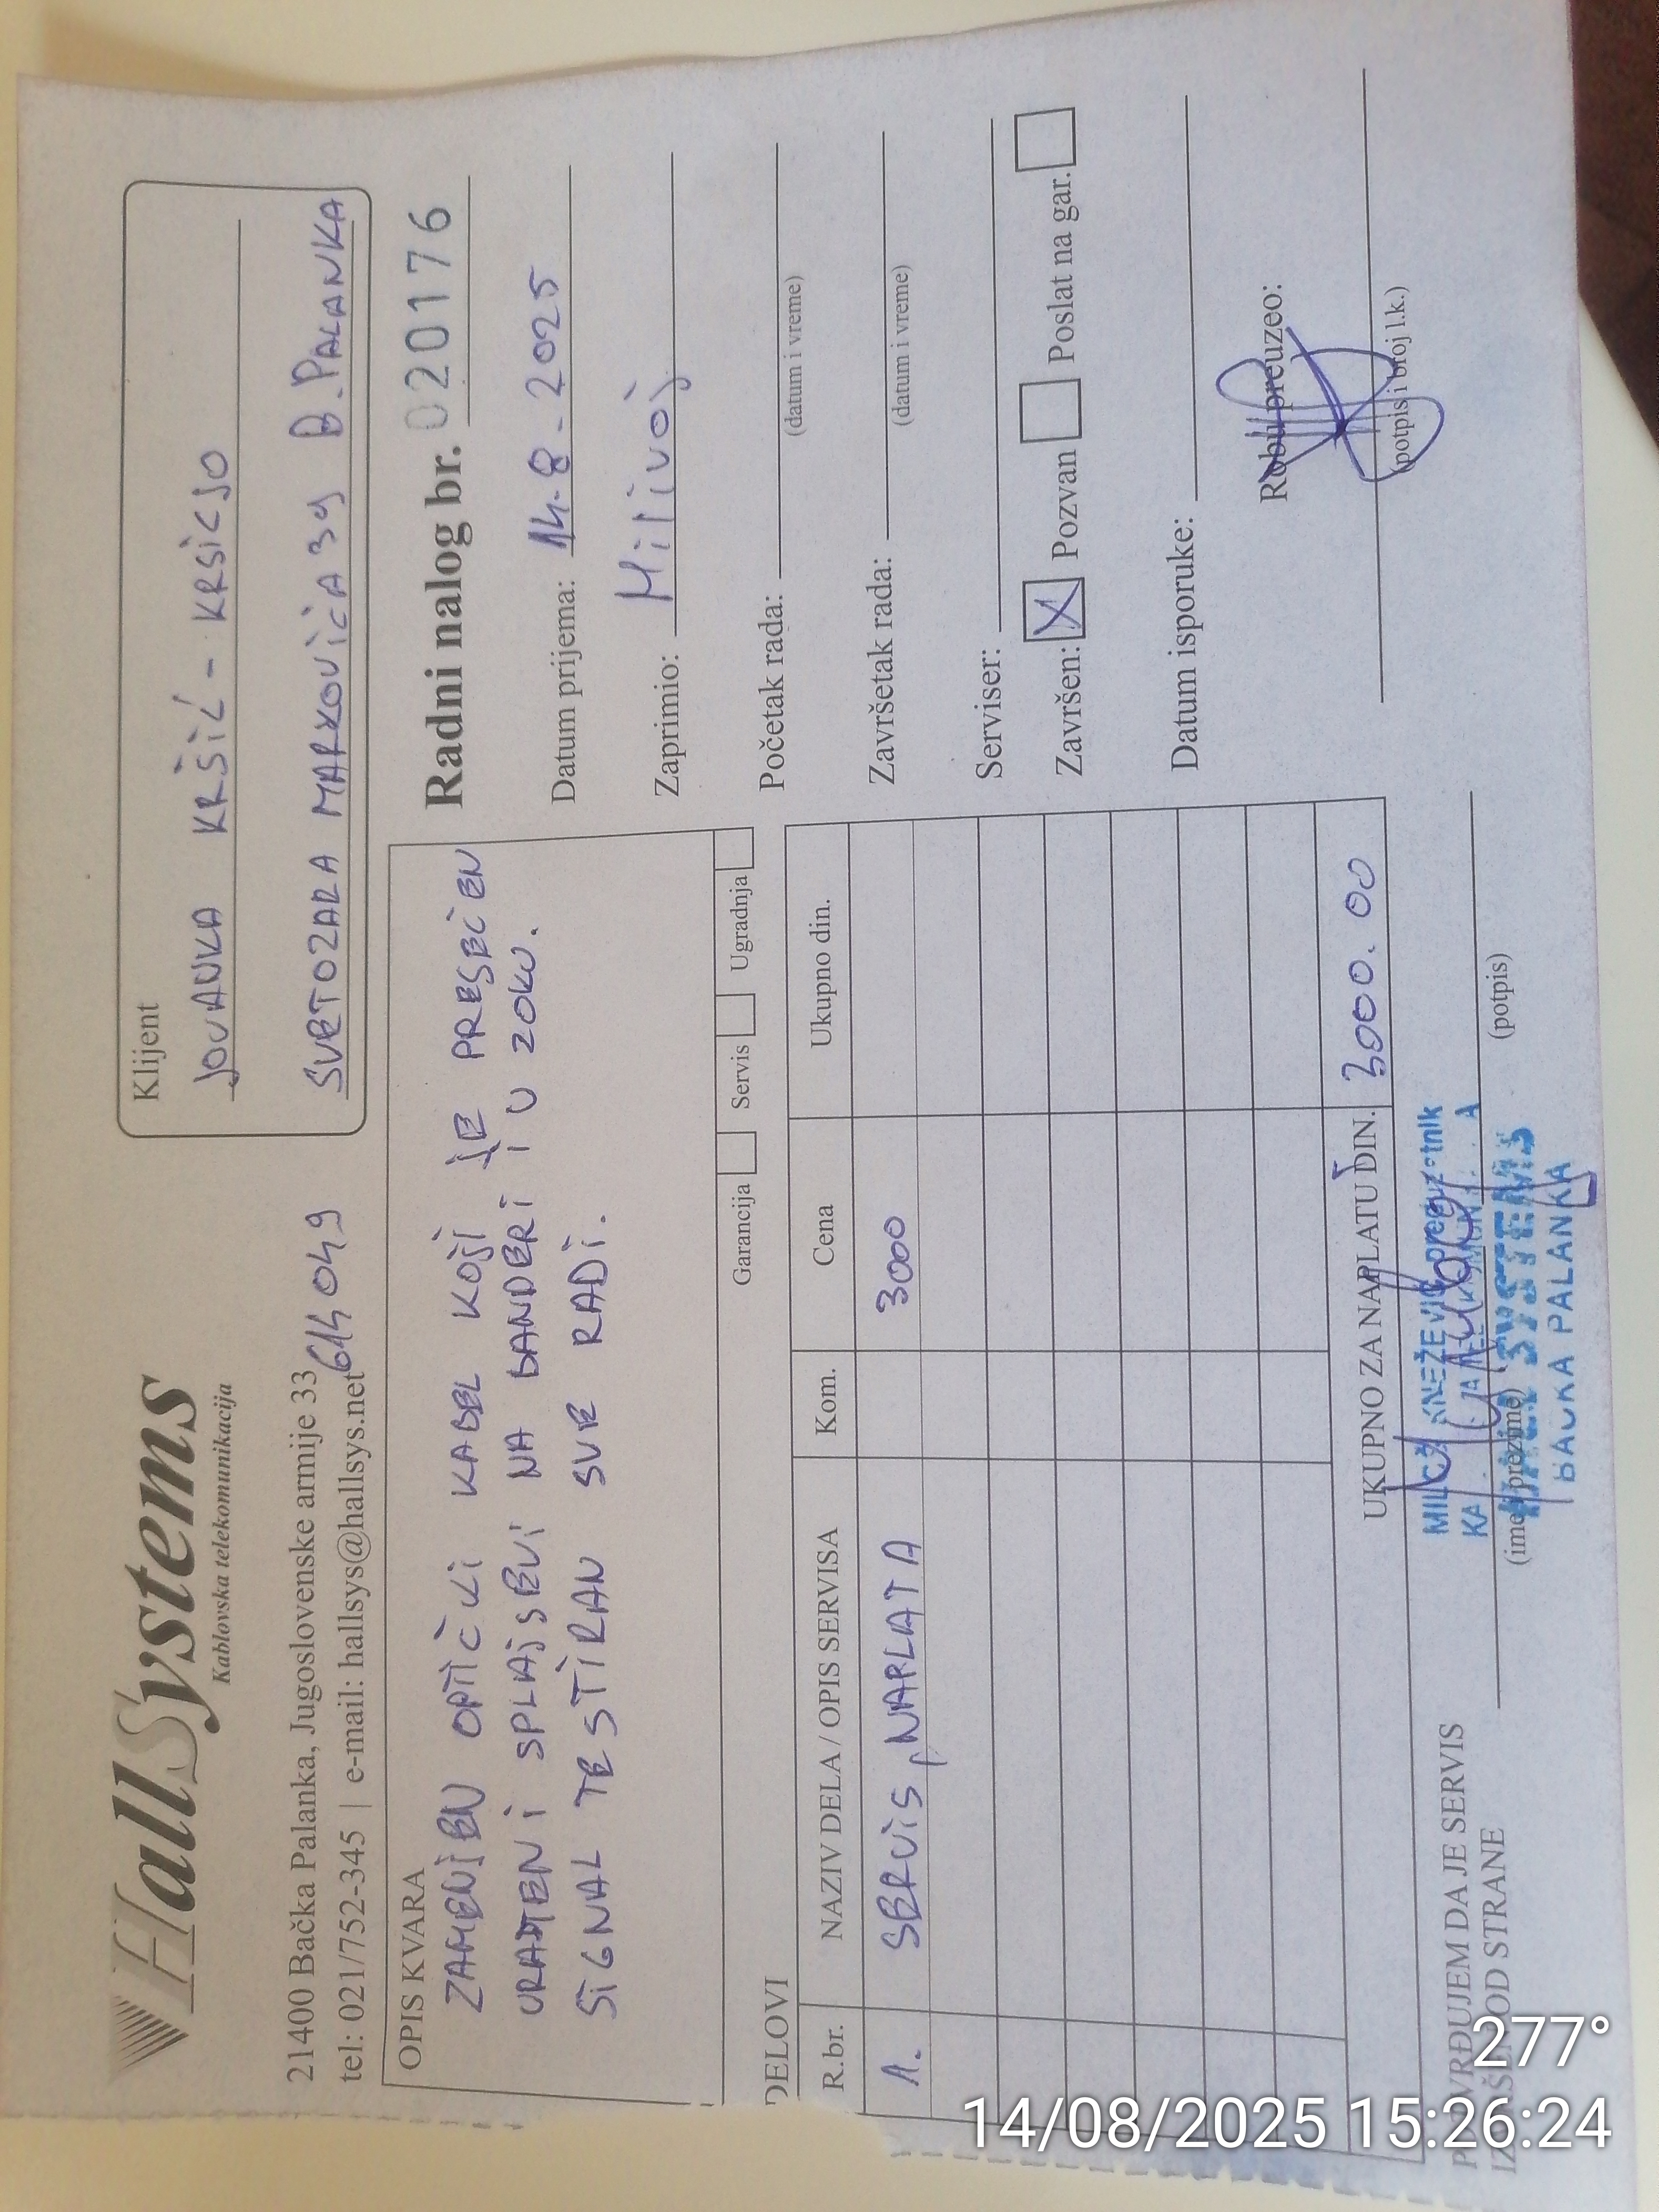 HallSystems
Kablovska telekomunikacija
21400 Bačka Palanka, Jugoslovenske armije 33
tel: 021/752-345 | e-mail: hallsys@hallsys.net
614 049
Klijent
JOVANKA KRŠIĆ - KRSICJO
SVETOZARA MARKOVIĆA 39 B.PALANKA
OPIS KVARA
ZAMENJEN OPTIČKI KABEL KOJI JE PRESEČEN
URAĐENI SPLAJSEVI NA BANDERI I U ZOKU.
SIGNAL TESTIRAN SVE RADI.
Garancija Servis Ugradnja
Radni nalog br. 020176
Datum prijema: 14.8.2025
Zaprimio: Milivoj
Početak rada:
(datum i vreme)
Završetak rada:
(datum i vreme)
Serviser:
Završen: X Pozvan Poslat na gar.
Datum isporuke:
Robu preuzeo:
(potpis i broj l.k.)
DELOVI
R.br. NAZIV DELA / OPIS SERVISA Kom. Cena Ukupno din.
1. SERVIS, NAPLATA 3000
UKUPNO ZA NAPLATU DIN. 3000.00
POTVRĐUJEM DA JE SERVIS
IZVRŠEN OD STRANE
(ime i prezime) (potpis)
KNEŽEVIĆ
SYSTEMS
BAČKA PALANKA
277°
14/08/2025 15:26:24